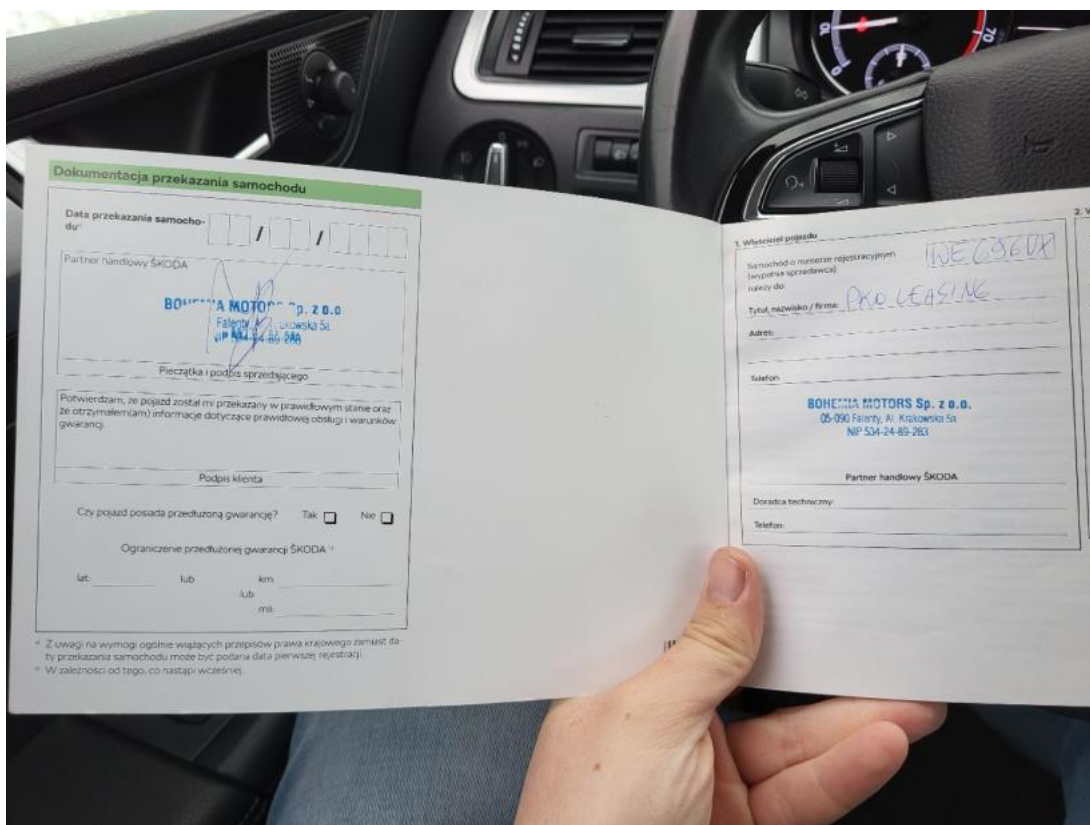 Dokumentacja przekazania samochodu
Data przekazania samocho-
du*⁾
/ /
Partner handlowy ŠKODA
BOHEMIA MOTORS Sp. z o.o.
Falenty, Al. Krakowska 5a
Pieczątka i podpis sprzedającego
Potwierdzam, że pojazd został mi przekazany w prawidłowym stanie oraz
że otrzymałem(am) informacje dotyczące prawidłowej obsługi i warunków
gwarancji.
Podpis klienta
Czy pojazd posiada przedłużoną gwarancję? Tak Nie
Ograniczenie przedłużonej gwarancji ŠKODA
lat: lub km
lub
mil:
Z uwagi na wymogi ogólnie wiążących przepisów prawa krajowego zamiast da-
ty przekazania samochodu może być podana data pierwszej rejestracji.
W zależności od tego, co nastąpi wcześniej.
1. Właściciel pojazdu
Samochód o numerze rejestracyjnym
(wypełnia sprzedawca)
WE 696UX
należy do:
Tytuł, nazwisko / firma: PKO LEASING
Adres:
Telefon:
BOHEMIA MOTORS Sp. z o.o.
05-090 Falenty, Al. Krakowska 5a
NIP 534-24-89-283
Partner handlowy ŠKODA
Doradca techniczny:
Telefon:
2.
70